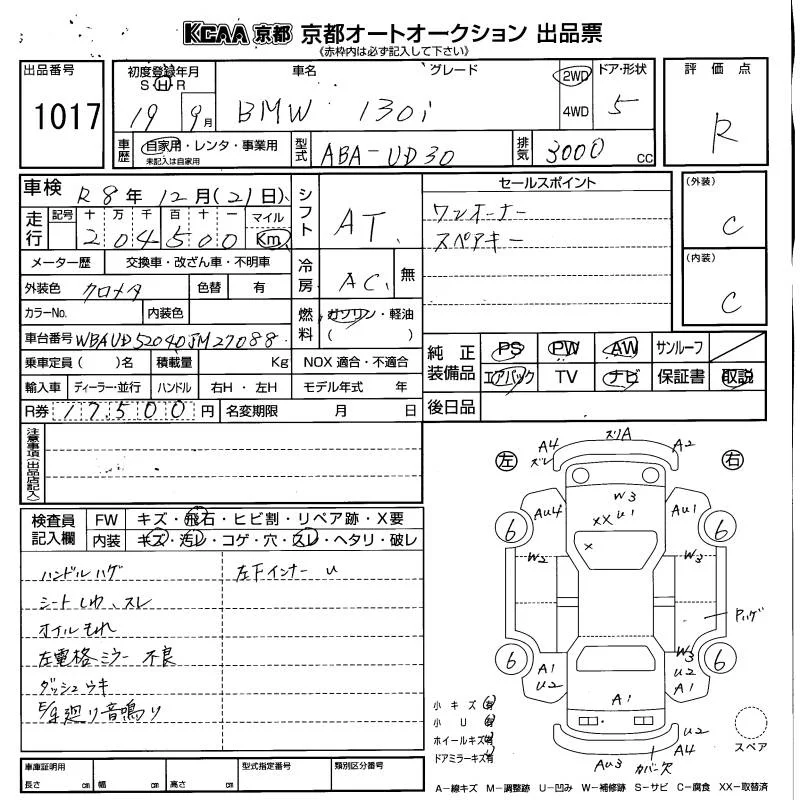 KCAA 京都 京都オートオークション 出品票
《赤枠内は必ず記入して下さい》
出品番号
1017
初度登録年月
S H R
19 9月
車名
グレード
BMW 130i
2WD
4WD
ドア・形状
5
車歴
自家用・レンタ・事業用
未記入は自家用
型式
ABA-UD30
排気
3000 cc
評価点
R
車検 R8年12月(21日)
走行
記号 十 万 千 百 十 一 マイル
2 0 4 5 0 0 Km
メーター歴 交換車・改ざん車・不明車
外装色 クロメタ 色替 有
カラーNo. 内装色
車台番号 WBAUD52040JM27088
乗車定員 ( )名 積載量 Kg
輸入車 ディーラー・並行 ハンドル 右H・左H
R券 17,500円 名変期限 月 日
シフト
AT
冷房
AC 無
燃料
ガソリン・軽油
( )
NOX 適合・不適合
モデル年式 年
セールスポイント
ワンオーナー
スペアキー
(外装)
C
(内装)
C
純正装備品
PS PW AW サンルーフ
エアバック TV ナビ 保証書 取説
後日品
注意事項(出品店記入)
検査員記入欄
FW キズ・飛石・ヒビ割・リペア跡・X要
内装 キズ・汚レ・コゲ・穴・スレ・ヘタリ・破レ
ハンドルハゲ
左下インナー U
シートしわ、スレ
オイルもれ
左電格ミラー不良
ダッシュウキ
E/g廻り音鳴り
車庫証明用
長さ cm 幅 cm 高さ cm
型式指定番号
類別区分番号
左
右
A4
ズレ
ズリA
A2
W3
U1
XX
X
AU4
AU1
6
6
W2
W3
Pハゲ
6
6
A1
U2
W3
U2
A1
A1
U2
A4
AU3
カバー欠
小キズ有
小U有
ホイールキズ有
ドアミラーキズ有
スペア
A-線キズ M-調整跡 U-凹み W-補修跡 S-サビ C-腐食 XX-取替済